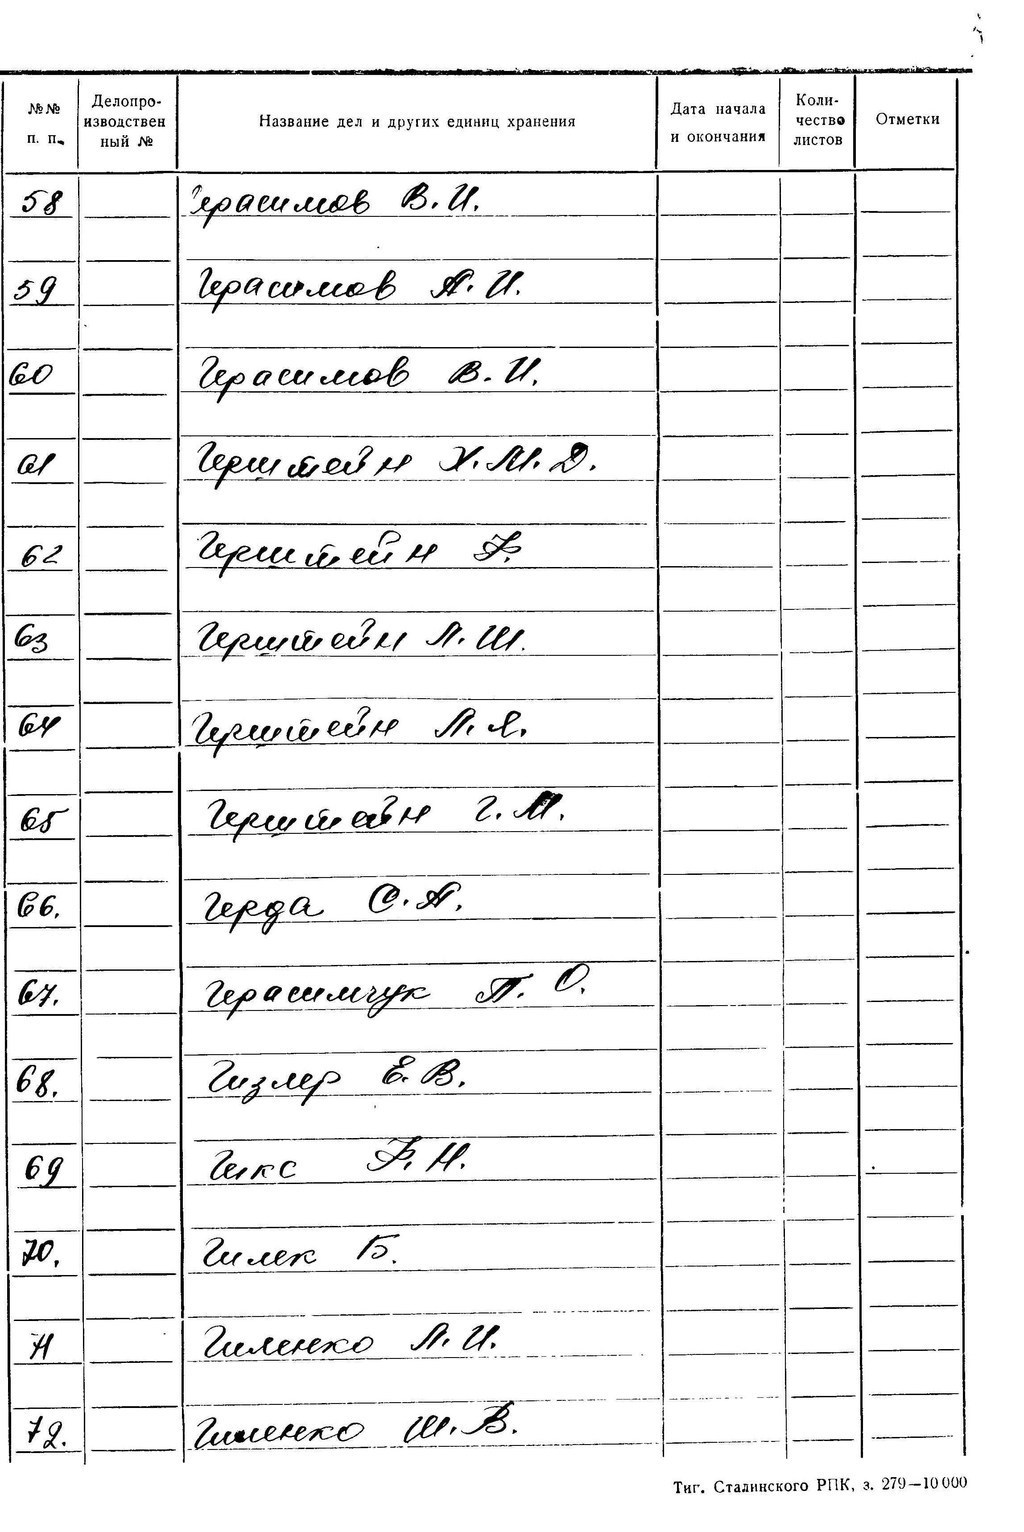 №№ п. п.
Делопро-
изводствен
ный №
Название дел и других единиц хранения
Дата начала
и окончания
Коли-
чество
листов
Отметки
58 Герасимов В. И.
59 Герасимов А. И.
60 Герасимов В. И.
61 Герштейн Х. М. Д.
62 Герштейн Ф.
63 Герштейн Л. Ш.
64 Герштейн Л. Я.
65 Герштейн Г. М.
66. Герда С. А.
67. Герасимчук П. О.
68. Гизлер Е. В.
69 Гикс Ф. Н.
70. Гилек Б.
71 Гиленко Л. И.
72. Гиленко Ш. В.
Тиг. Сталинского РПК, з. 279—10 000